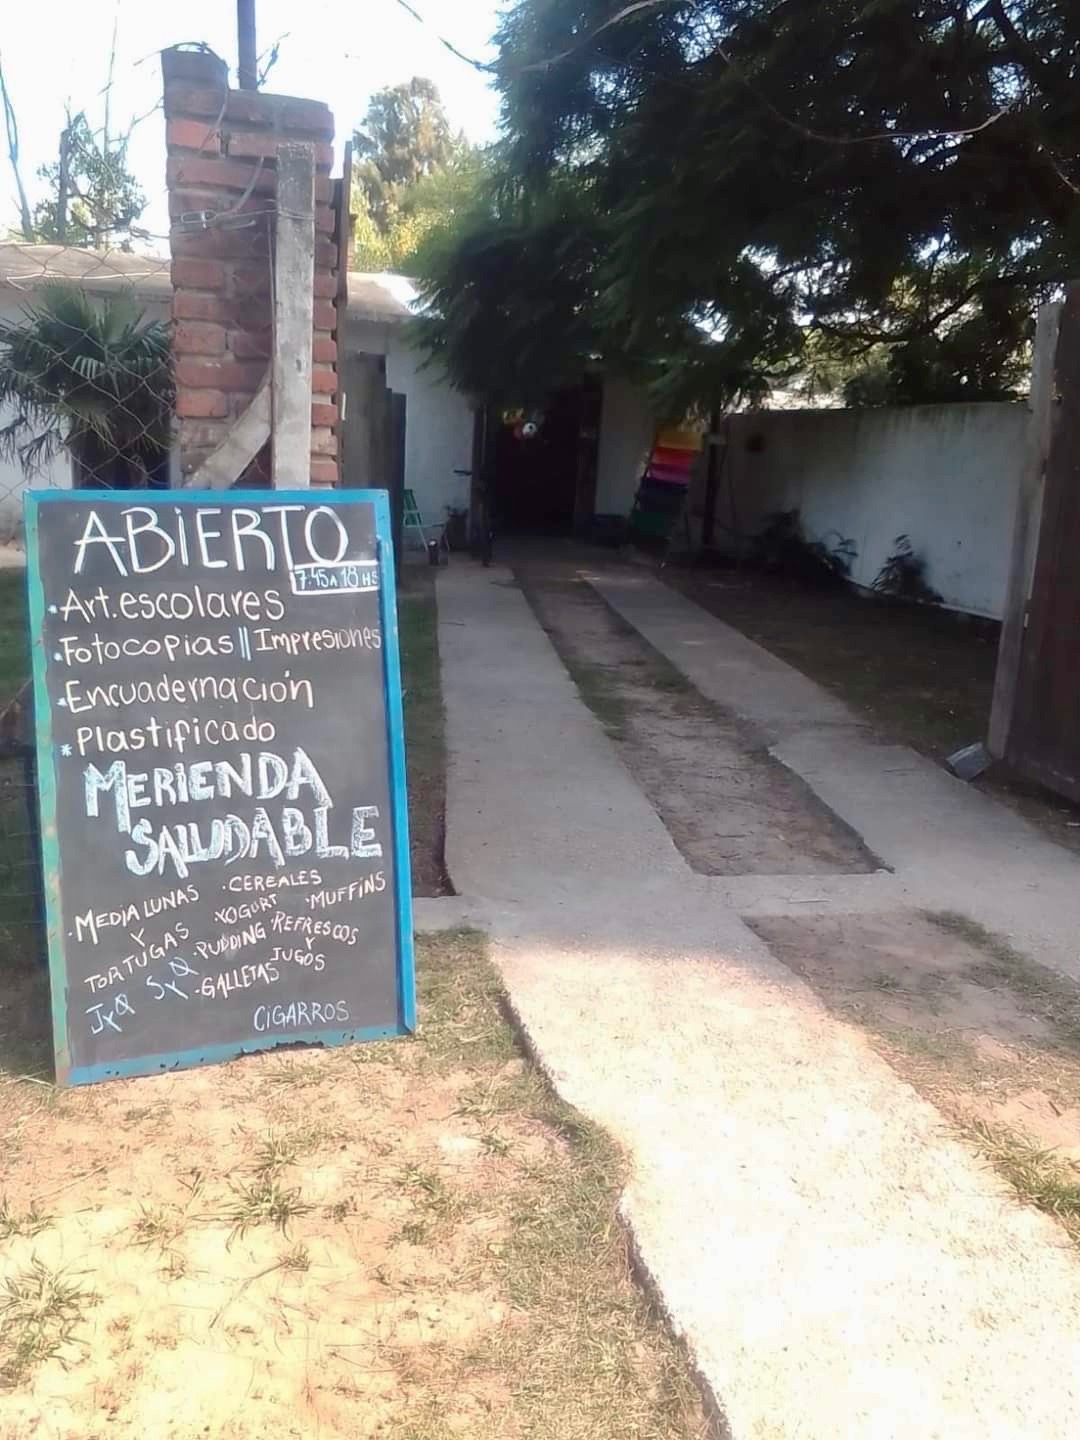 ABiERTO
7:45 A 18 HS
·Art.escolares
·Fotocopias || Impresiones
*Encuadernación
*Plastificado
MERIENDA
SALUDABLE
·MEDIALUNAS
Y
TORTUGAS
JyQ SyQ
·CEREALES
YOGURT
·PUDDING
·GALLETAS
·MUFFiNS
·REFRESCOS
Y
JUGOS
CiGARROS